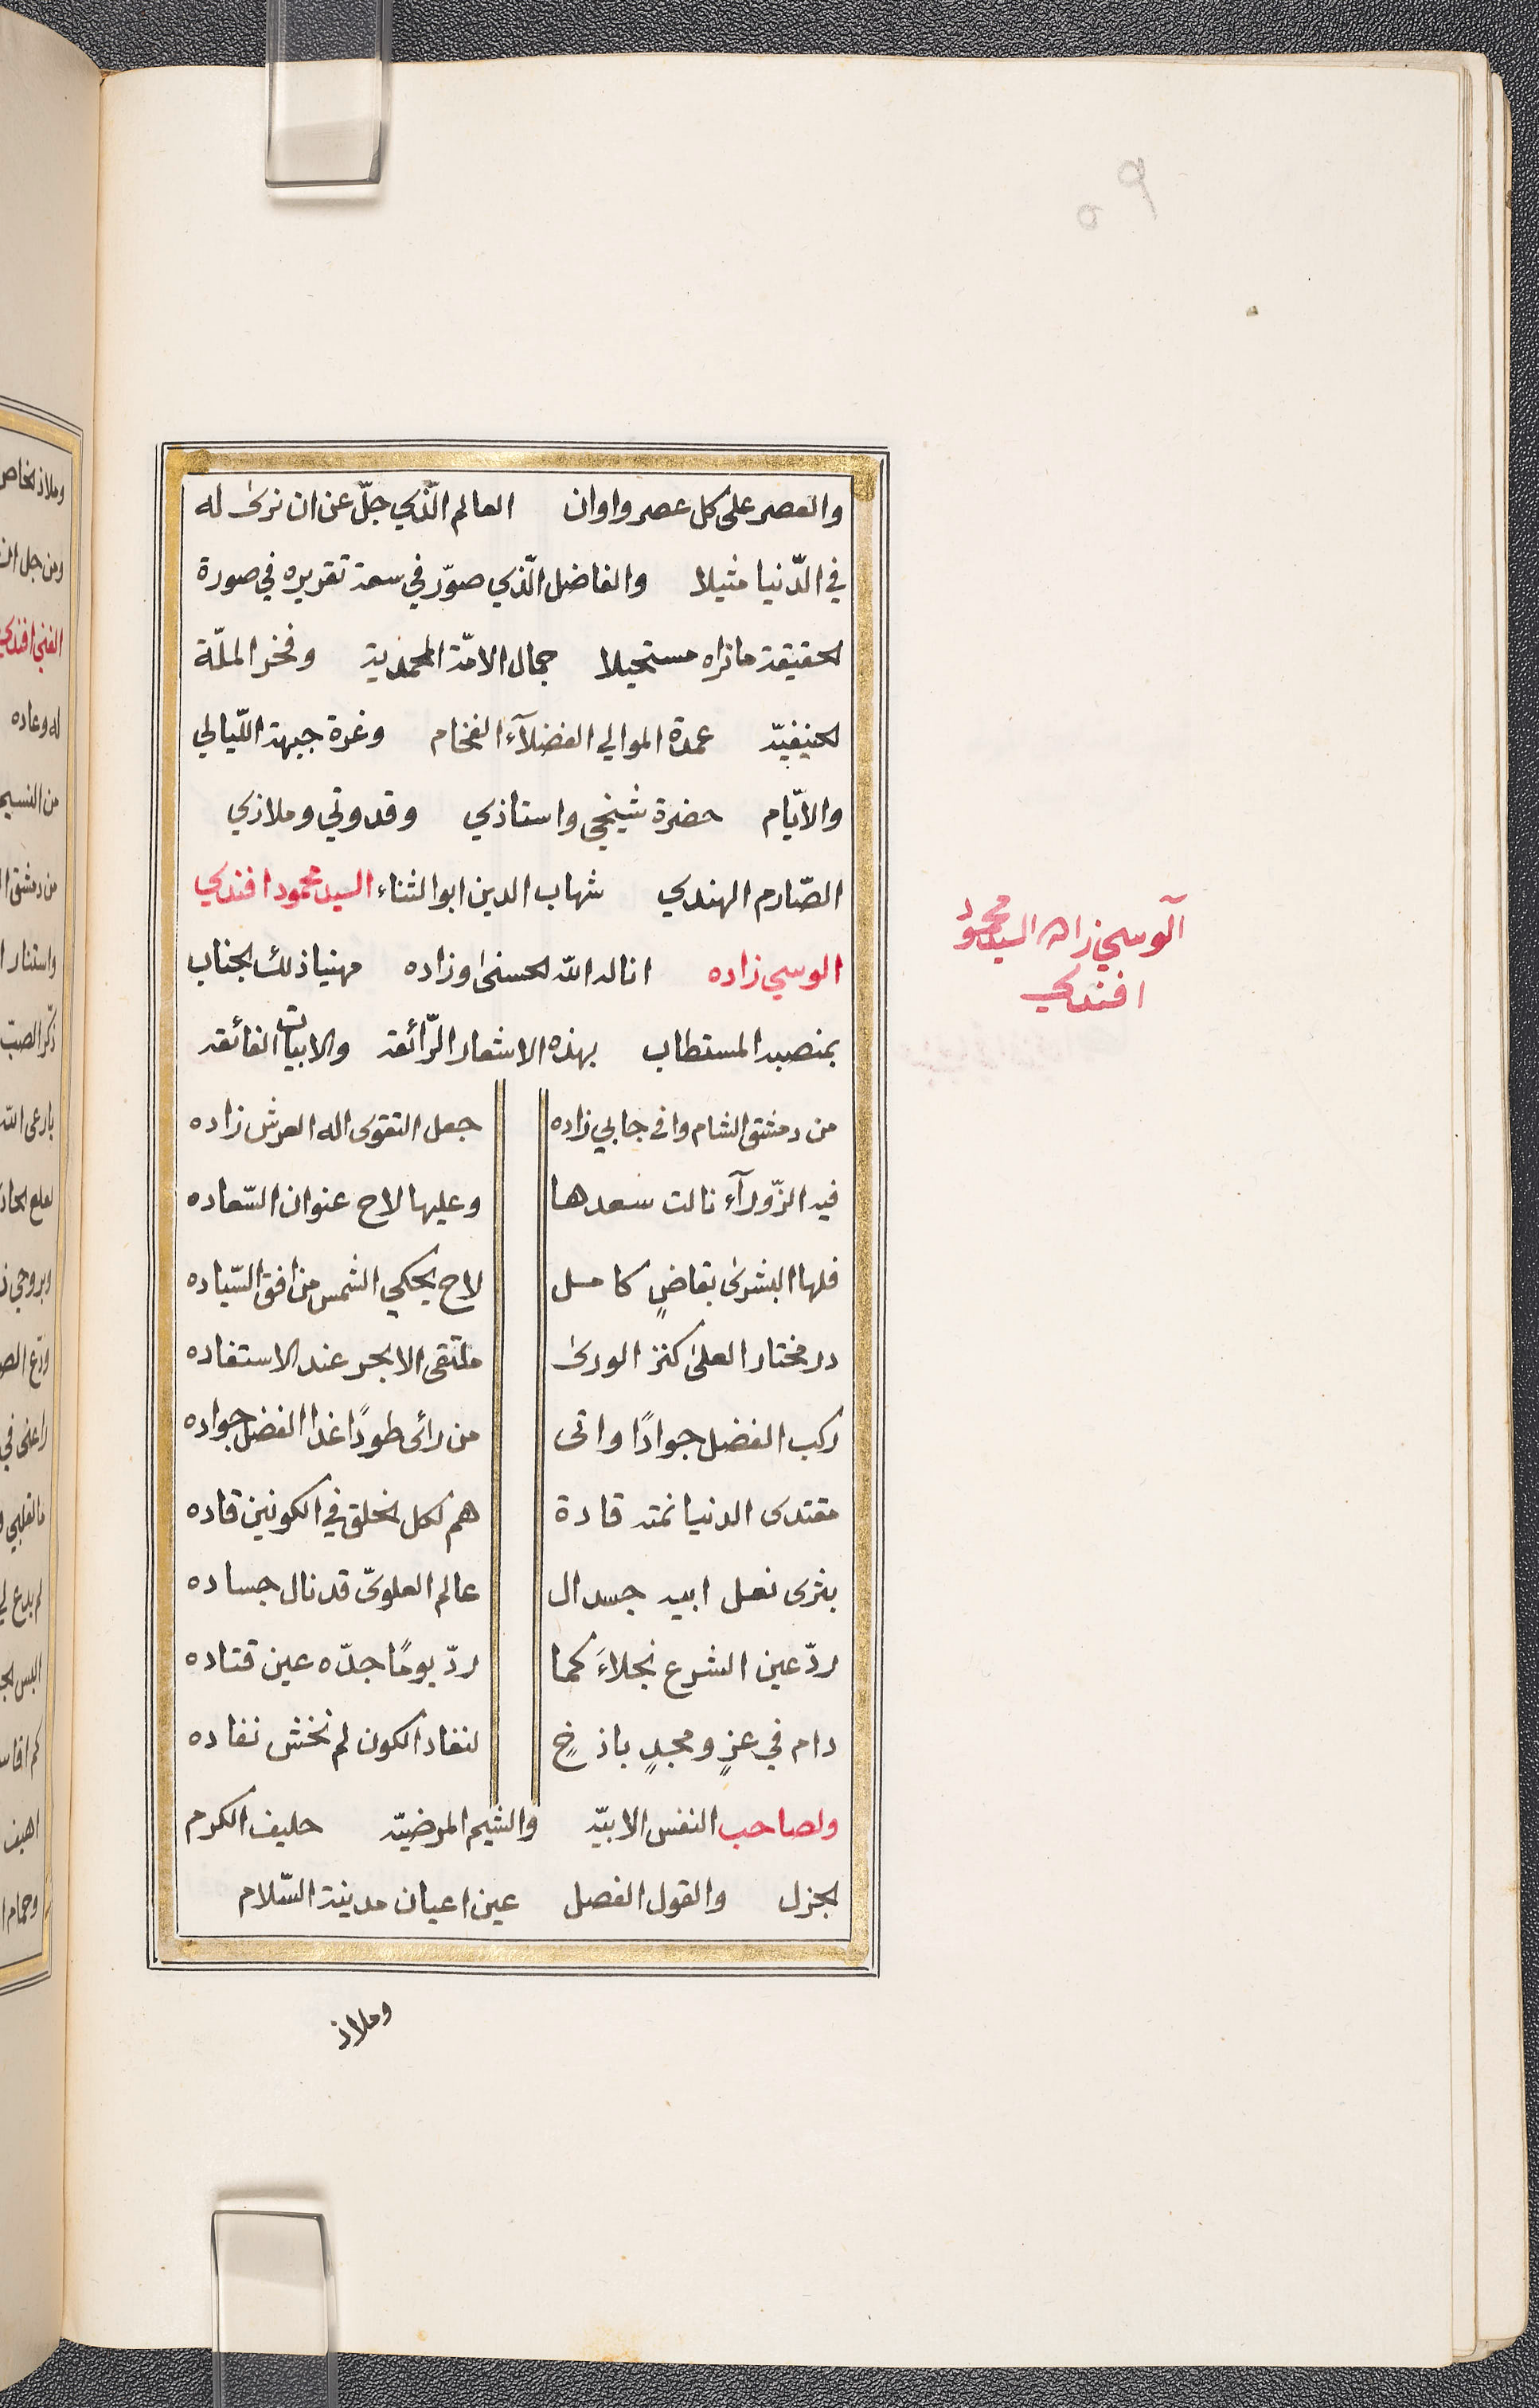 والعصر على كل عصر واوان العالم الّذي جلّ عن ان نرى له
في الدّنيا مثيلا والفاضل الّذي صوّر في سعة تقريره في صورة
الحقيقة ما تراه مستحيلا جمال الامّة المحمديّة وفخر الملّة
الحنيفيّة عمدة الموالي الفضلآء الفخام وغرة جبهة اللّيالي
والايّام حضرة شيخي واستاذي وقدوتي وملاذي
الصّارم الهندي شهاب الدين ابو الثناء السيد محمود افندي
الوسي زاده اناله الله الحسنى وزاده مهنيا ذلك الجناب
بمنصبه المستطاب بهذه الاشعار الرّائقة والابيات الفائقة
آلوسي زاده السيد محمود
افندي
من دمشق الشام وافى جابي زاده جعل التقوى اله العرش زاده
فيه الزّورآء نالت سعدها وعليها لاح عنوان السّعاده
فلها البشرى بقاضٍ كامل لاح يحكي الشمس من افق السّياده
در مختار العلى كنز الورى ملتقى الابحر عند الاستفاده
ركب الفضل جوادًا واتى من رائى طودًا غدا الفضل جواده
مقتدى الدنيا نمته قادة هم لكل الخلق في الكونين قاده
بثرى نعل ابيه جسد ال عالم العلويّ قد نال جساده
ردّ عين الشرع نجلاءَ كما ردّ يومًا جدّه عين قتاده
دام في عزٍ ومجدٍ باذخٍ لنفاد الكون لم نخش نفاده
ولصاحب النفس الابيّه والشيم المرضيّه حليف الكرم
الجزل والقول الفصل عين اعيان مدينة السّلام
وملاذ